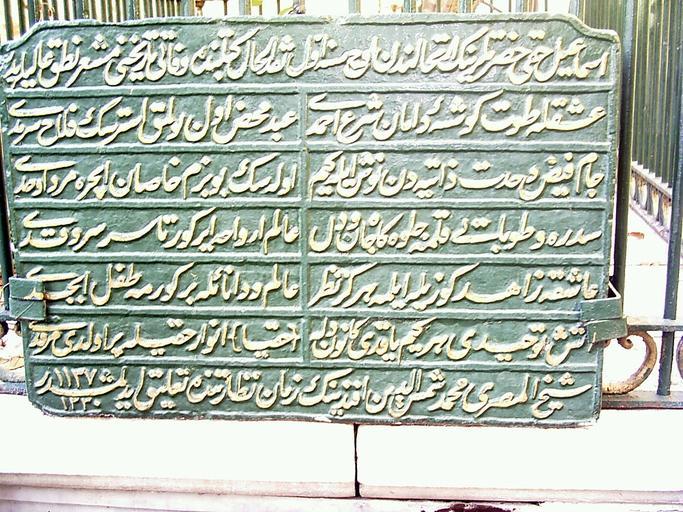 اسماعیل حقی حضرتلرینک ارتحالندن اون سنه اول شفا الحال وفاتی تاریخنی مشعر نطق عالیلریدر
عشقله طوت کوشهٔ دامان شرع احمدی عبد محض اول بولمق استرسک فلاح سرمدی
جام فیض وحدت ذاتیه دن نوش ایله کیم اوله سک بو بزم خاصان ایچره مرد اوحدی
سدره و طوبایه باقمه جلوه کاه جان و دل عالم ارواحه ایر کور تا سر سرو قدی
عاشقه زاهد کوزیله ایلمه هرکز نظر عالم و دانا ئله بر کورمه طفل ابجدی
آتش توحیدی هر کیم یاقدی کانون دله (حقیا) انوار حقیله پر اولدی مرقدی
شیخ المصری محمد شمس الدین افندینک زمان نظارتنده تعلیق ایدلمشدر
۱۱۳۷
۱۳۳۰